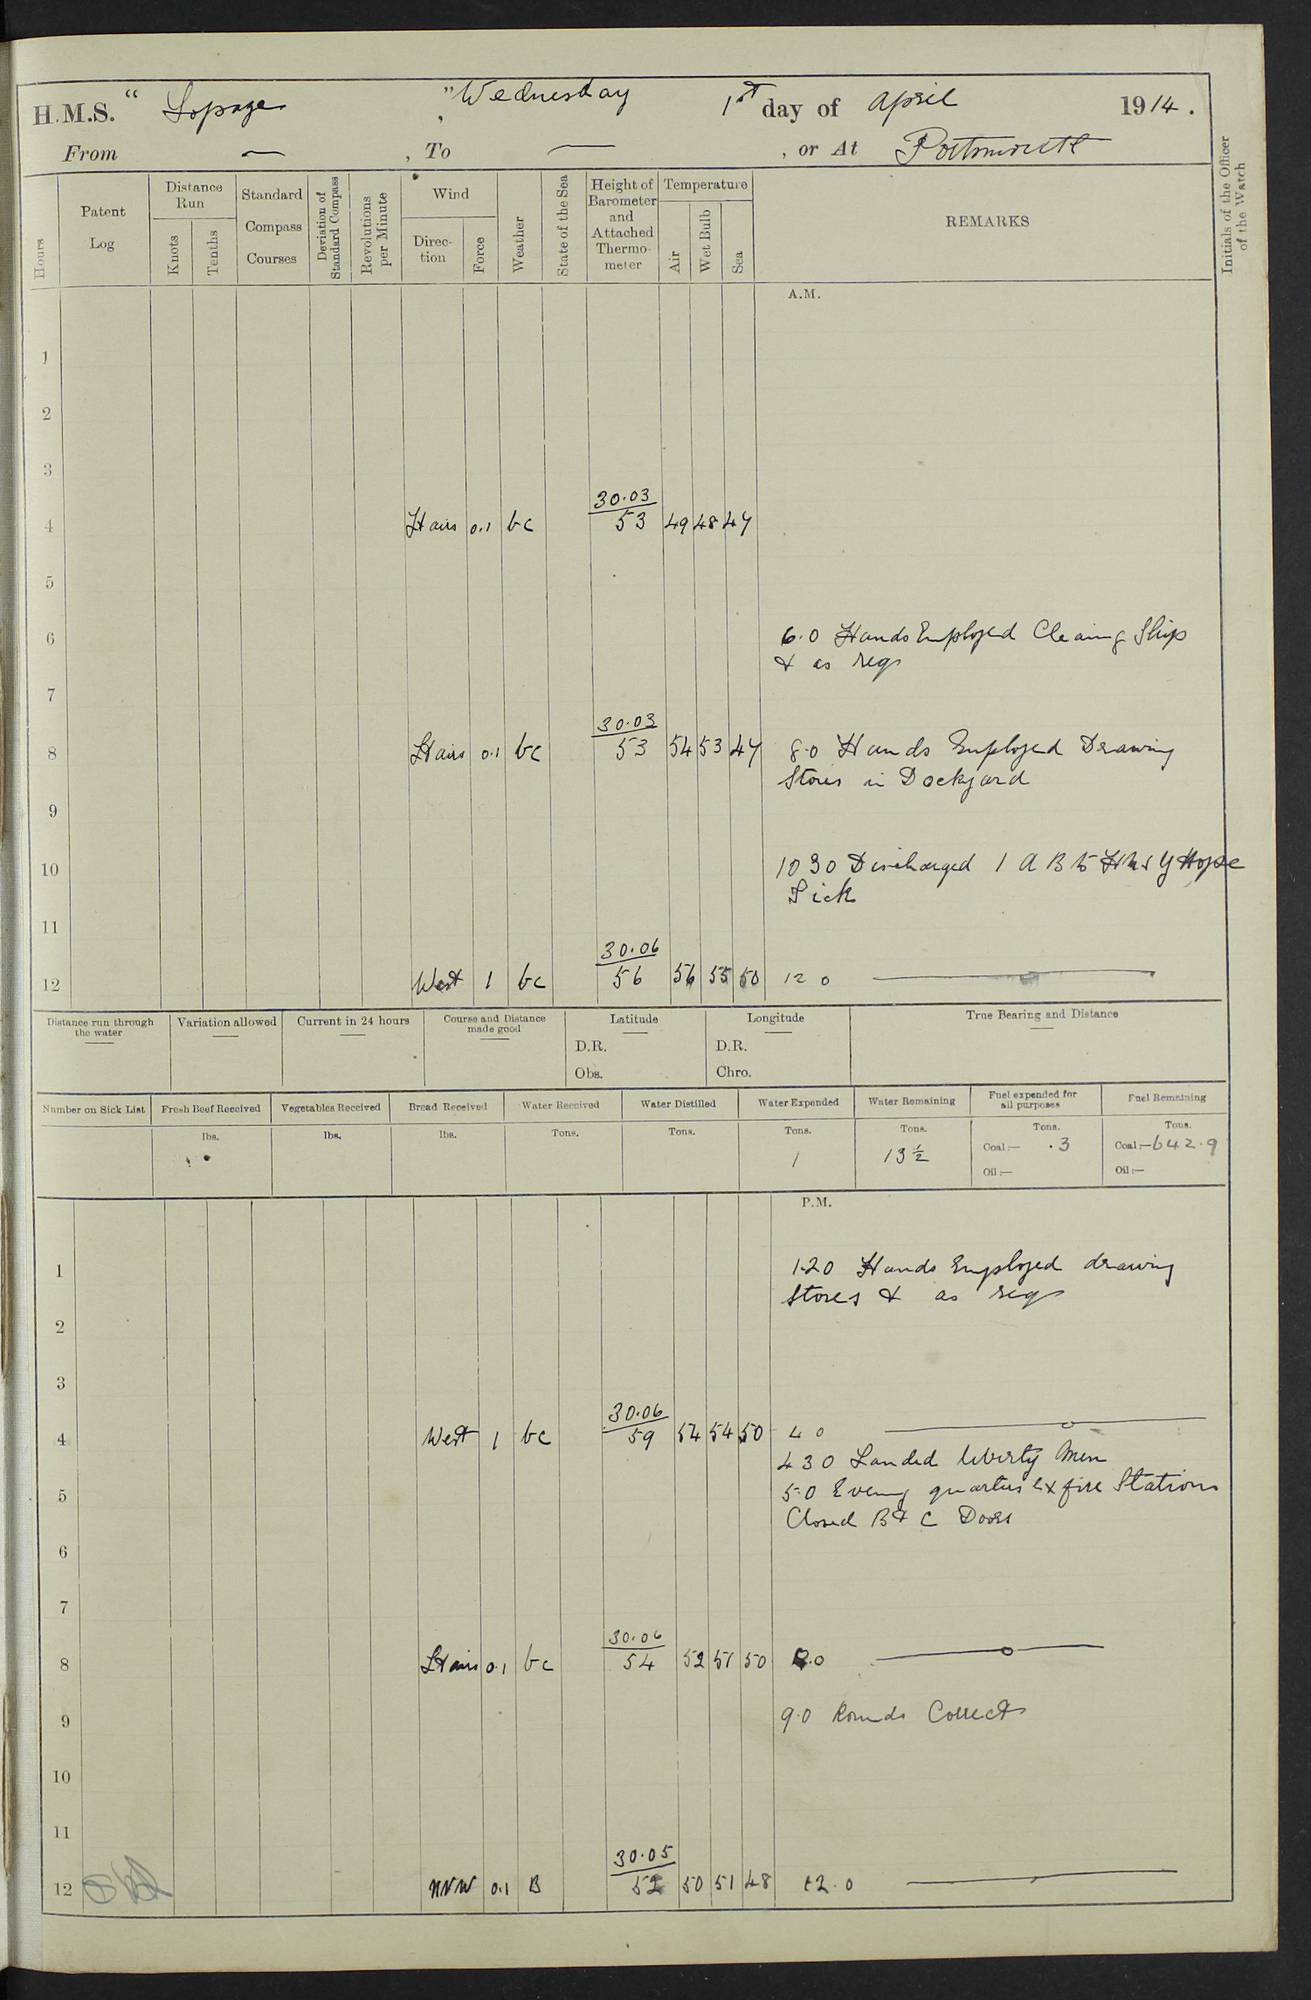 H.M.S. " Espiegle " Wednesday 1st day of April 1914.
From — , To — , or At Portsmouth
Hours
Patent Log
Distance Run
Knots
Tenths
Standard Compass Courses
Deviation of Standard Compass
Revolutions per Minute
Wind
Direction
Force
Weather
State of the Sea
Height of Barometer and Attached Thermometer
Temperature
Air
Wet Bulb
Sea
REMARKS
Initials of the Officer of the Watch
A.M.
1
2
3
4 Lt airs 0.1 bc 30.03 53 49 48 47
5
6 6.0 Hands Employed Cleaning Ship
& as req
7
8 Lt airs 0.1 bc 30.03 53 54 53 47 8.0 Hands Employed Drawing
Stores in Dockyard
9
10 10 30 Discharged 1 A B to
Sick
11
12 West 1 bc 30.06 56 56 55 50 12 0 —
Distance run through the water
Variation allowed
Current in 24 hours
Course and Distance made good
Latitude
D.R.
Obs.
Longitude
D.R.
Chro.
True Bearing and Distance
Number on Sick List
Fresh Beef Received
lbs.
Vegetables Received
lbs.
Bread Received
lbs.
Water Received
Tons.
Water Distilled
Tons.
Water Expended
Tons.
1
Water Remaining
Tons.
13 ½
Fuel expended for all purposes
Tons.
Coal:— .3
Oil:—
Fuel Remaining
Tons.
Coal:— 642.9
Oil:—
P.M.
1 1.20 Hands Employed drawing
Stores & as req
2
3
4 West 1 bc 30.06 59 54 54 50 4 0 —
4 30 Landed liberty Men
5 5.0 Evening quarters Ex fire Stations
Closed B & C Doors
6
7
8 Lt airs 0.1 bc 30.06 54 52 51 50 8.0 —
9 9.0 Rounds Correct
10
11
12 NNW 0.1 B 30.05 52 50 51 48 12.0 —